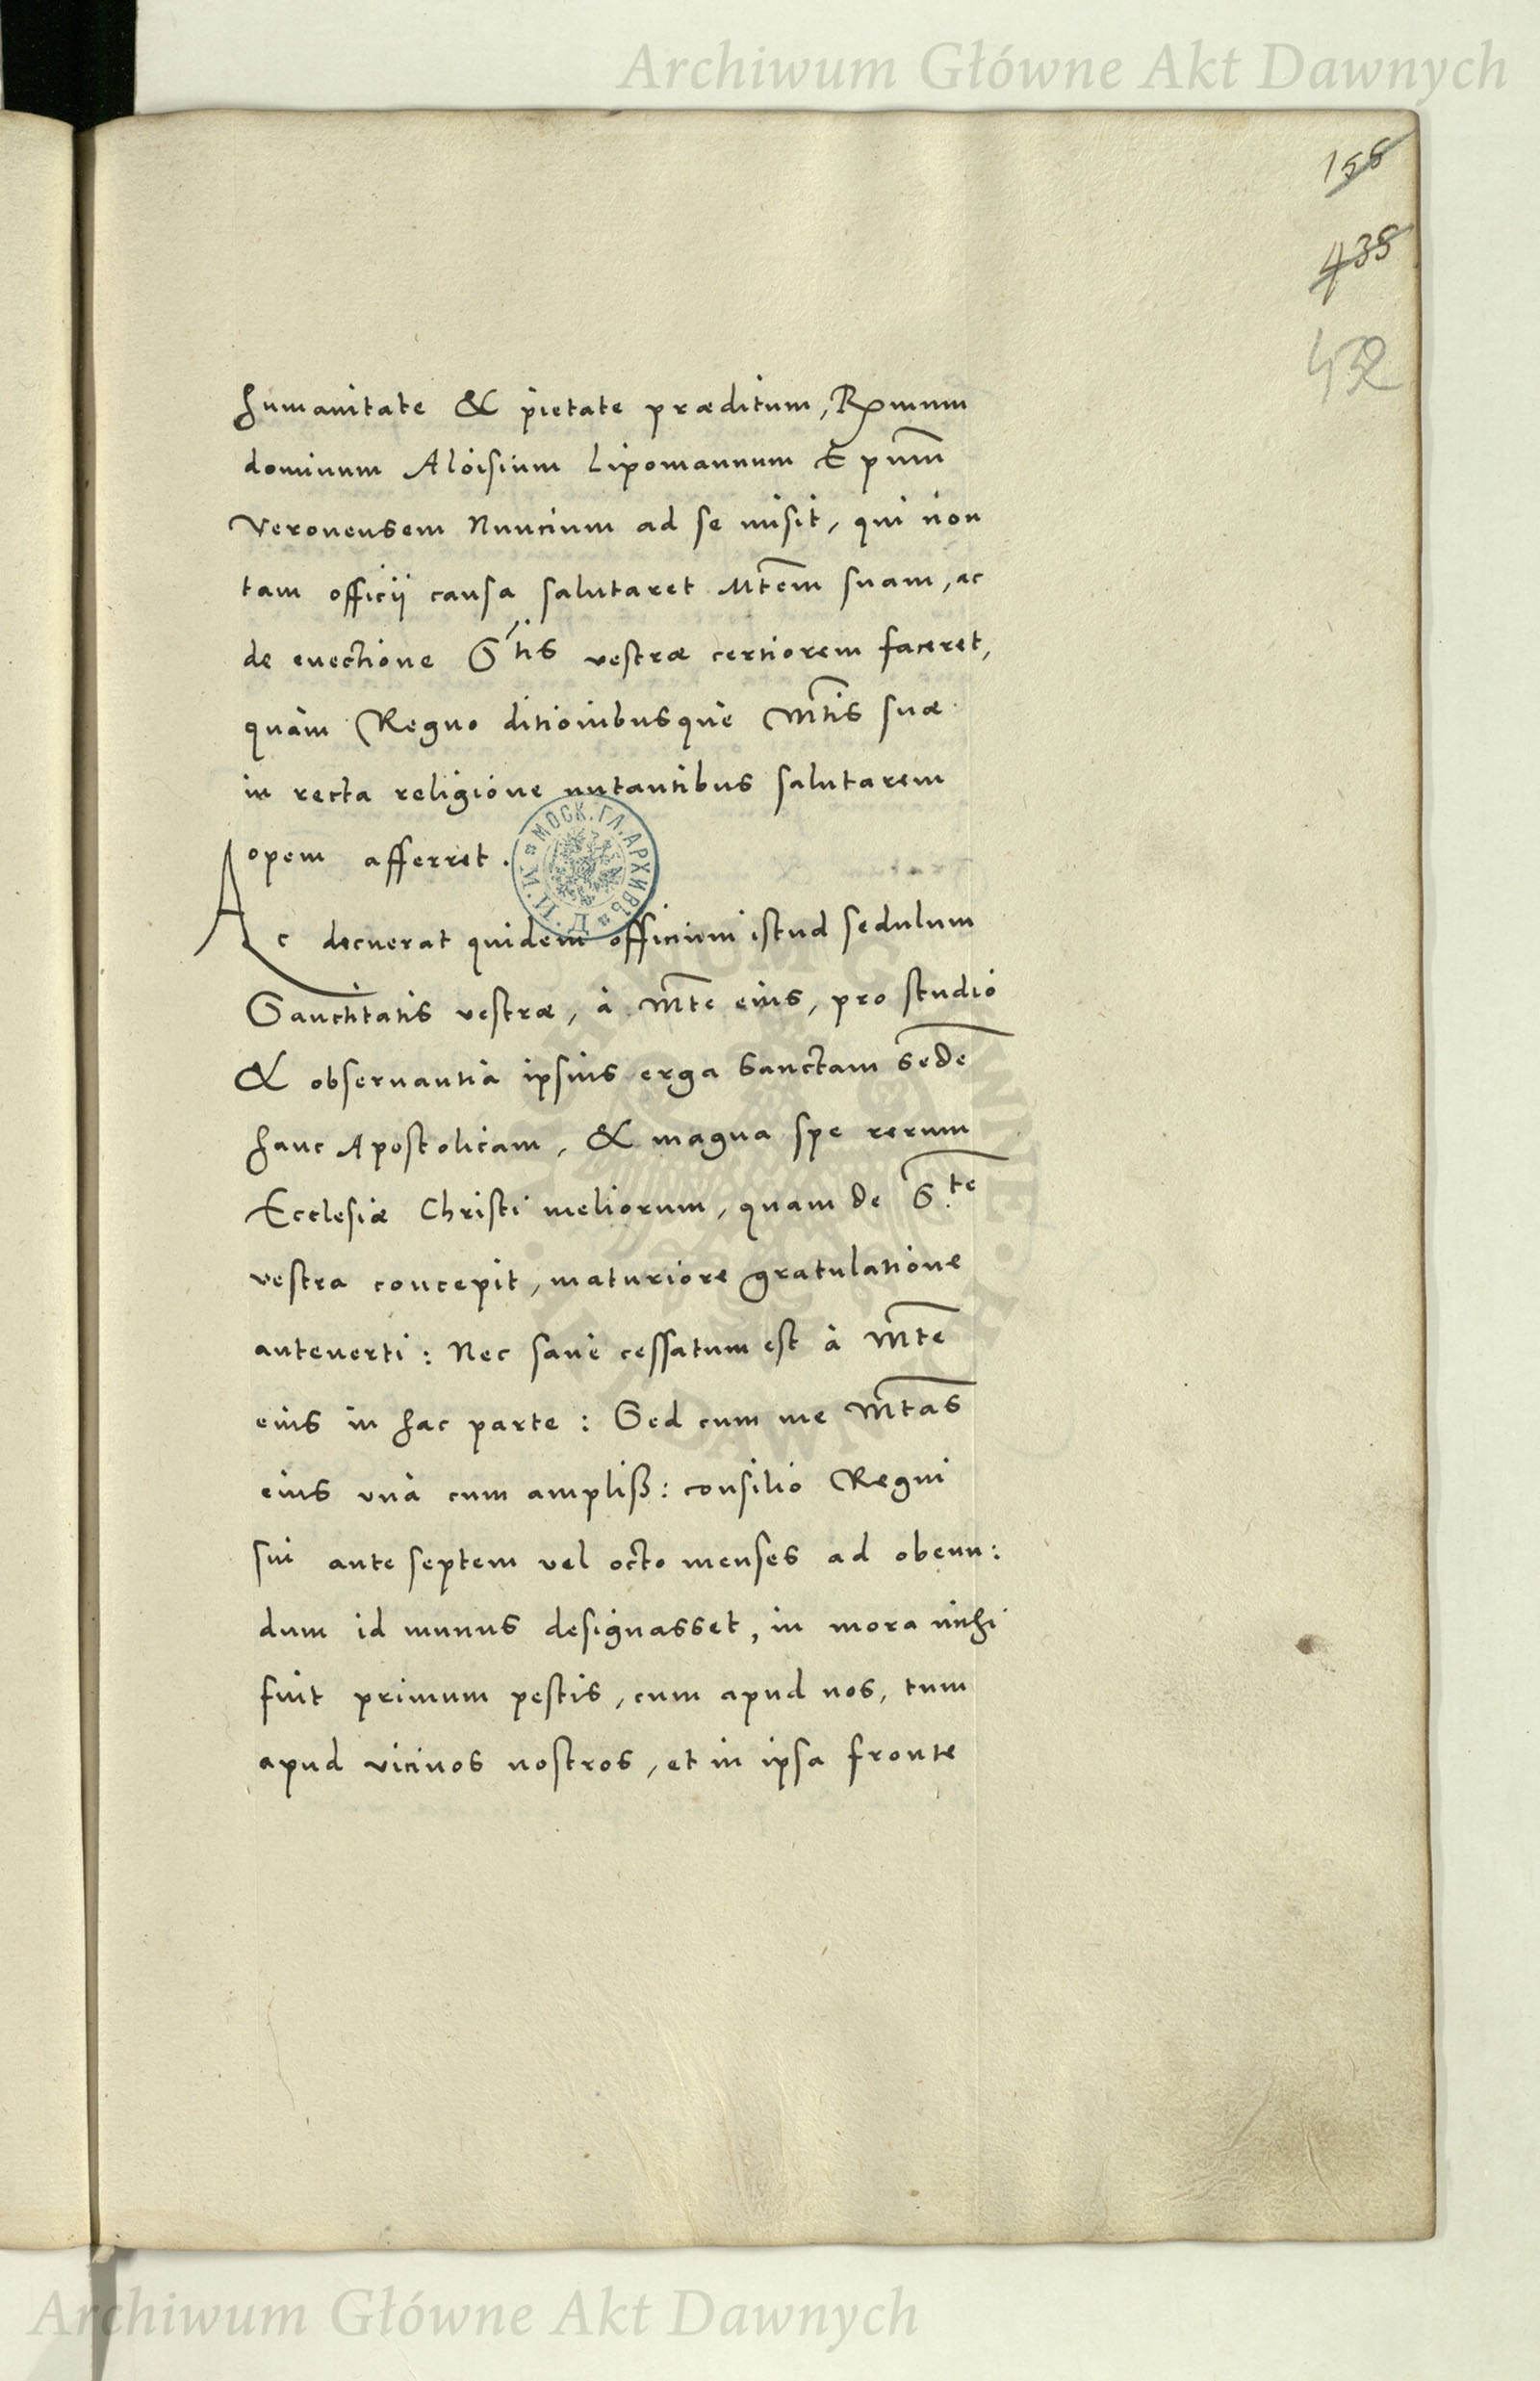 Archiwum Główne Akt Dawnych
158
438
432
humanitate & pietate præditum, R[mum]
dominum Aloisium Lipomannum Epum̄
Veronensem Nuncium ad se misit, qui non
tam officij causa salutaret Mtēm suam, ac
de euectione Stis vestræ certiorem faceret,
quàm Regno ditionibusque Mt̄is suæ
in recta religione nutantibus salutarem
opem afferret.
Ac decuerat quidem officium istud sedulum
Sanctitatis vestræ, à Mt̄e eius, pro studio
& obseruantia ipsius erga Sanctam Sedē
hanc Apostolicam, & magna spe rerum
Ecclesiæ Christi meliorum, quam de S.te
vestra concepit, maturiore gratulatione
anteuerti: Nec sanè cessatum est à Mt̄e
eius in hac parte: Sed cum me Mt̄as
eius unà cum ampliß: consilio Regni
sui ante septem vel octo menses ad obeun:
dum id munus designasset, in mora mihi
fuit primum pestis, cum apud nos, tum
apud vicinos nostros, et in ipsa fronte
МОСК. ГЛ. АРХИВЪ
Archiwum Główne Akt Dawnych